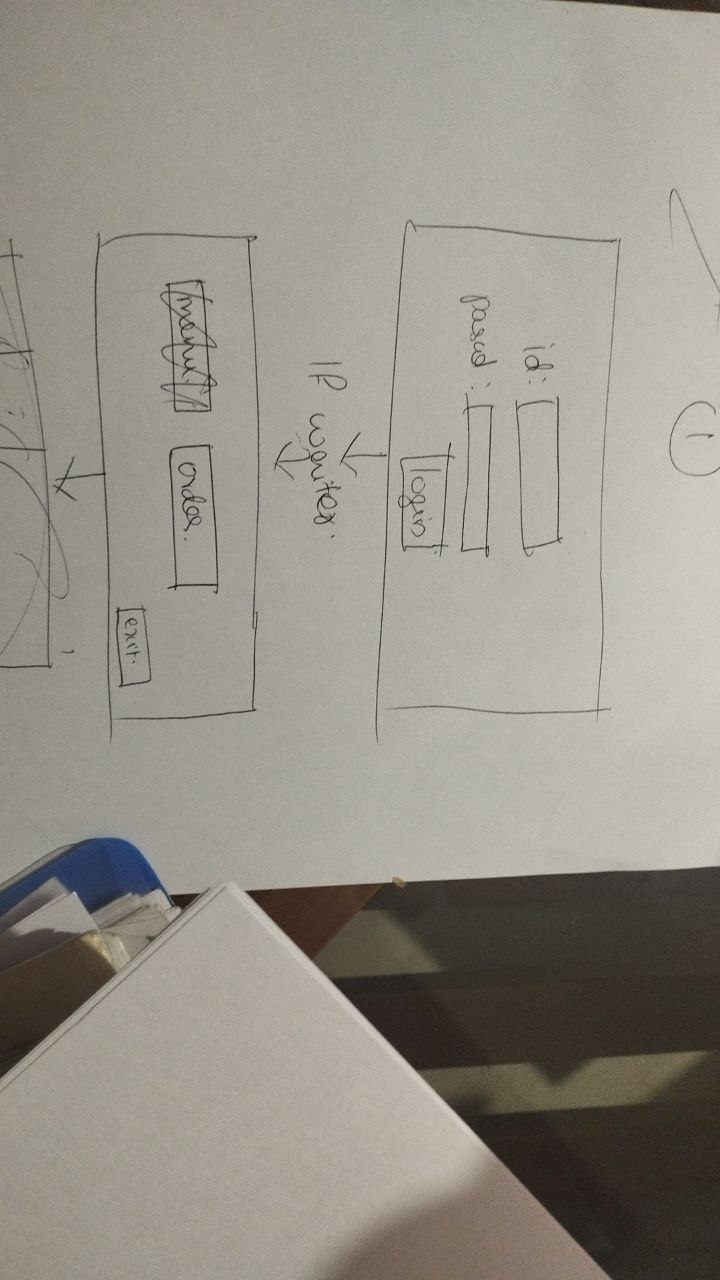 1
id:
passd :
login
If waiter.
order.
exit.